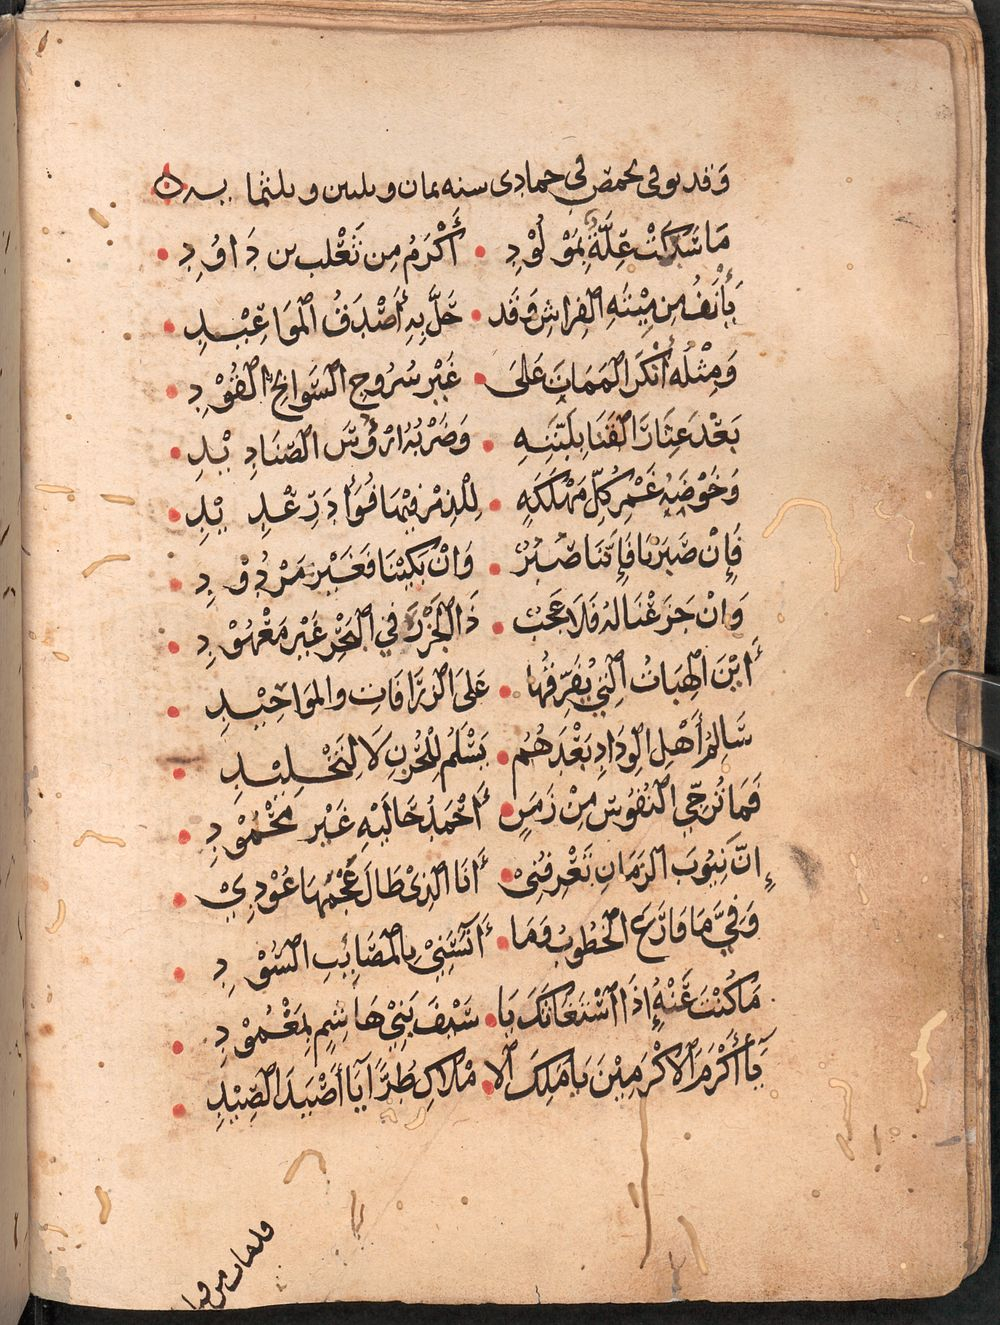 وقد توفي بحمص في جمادى سنه ثمان وثلثين وثلثمايه
مَا سَدِكَتْ عِلَّةٌ بِمَوْلُوْدِ • أَكْرَمُ مِن تَغْلب بن دَاوُدِ •
يَأْنَفُ مِن مِيْتَةِ الفِراشِ وَقَد • حَلَّ بِهِ أَصْدَقُ المَوَاعِيْدِ •
وَمِثْلُه أَنْكَرَ المَمَاتَ عَلىَ • غَيْرِ سُرُوجِ السَّوابحِ القُوْدِ •
بَعْدَ عِثَارِ القَنَا بِلَبَّتِهِ • وَضَرْبِهِ ارْؤُسَ الصَّنَادِيْدِ •
وَخَوْضِهِ غَمْرَ كُلِّ مَهْلَكَةٍ • لِلذِمْرِ فِيْهَا فُؤَادُ رِعْدِيْدِ •
فَإِنْ صَبَرنَا فَإِنَّنَا صُبُرٌ • وَانْ بَكَيْنَا فَغَيْر مَرْدُوْدِ •
وَانْ جَزَعْنَا لهُ فَلَا عَجَبٌ • ذَا الجَزْرُ في البَحْرِ غَيْر مَعْهُوْدِ •
أَيْنَ الهِبَاتُ الَّتِي يُفَرِّقُها • عَلىَ الزَّرَافَاتِ والمَوَاحِيْدِ •
سَالِمُ أَهْلِ الوِدَادِ بَعْدَهُم • يَسْلَمُ لِلْحُزْنِ لَا لِتَخْلِيْدِ •
فَمَا تُرَجِّي النُفُوْسُ مِنْ زَمَنٍ • أَحْمَدُ حَالَيْهِ غَيْر مَحْمُوْدِ •
إِنَّ نِيُوبَ الزمَانِ تَعْرِفُنيْ • أَنَا الذِىْ طَالَ عَجْمُهَا عُوْدِيْ •
وَفِيَّ مَا قَارَعَ الخُطُوبَ وَمَا • أَنَسَنيْ بِالمَصَائِبِ السُّوْدِ •
مَا كُنْتَ عَنْهُ إِذَا اسْتَغَاثَكَ يَا • سَيْفَ بَنِيْ هَاشِمٍ بِمَغْمُوْدِ •
يَا أَكْرَمَ الاكْرَمِيْنَ يا مَلِكَ الا • مْلَاكِ طُرًّا يَا أَصْيَدَ الصِّيْدِ •